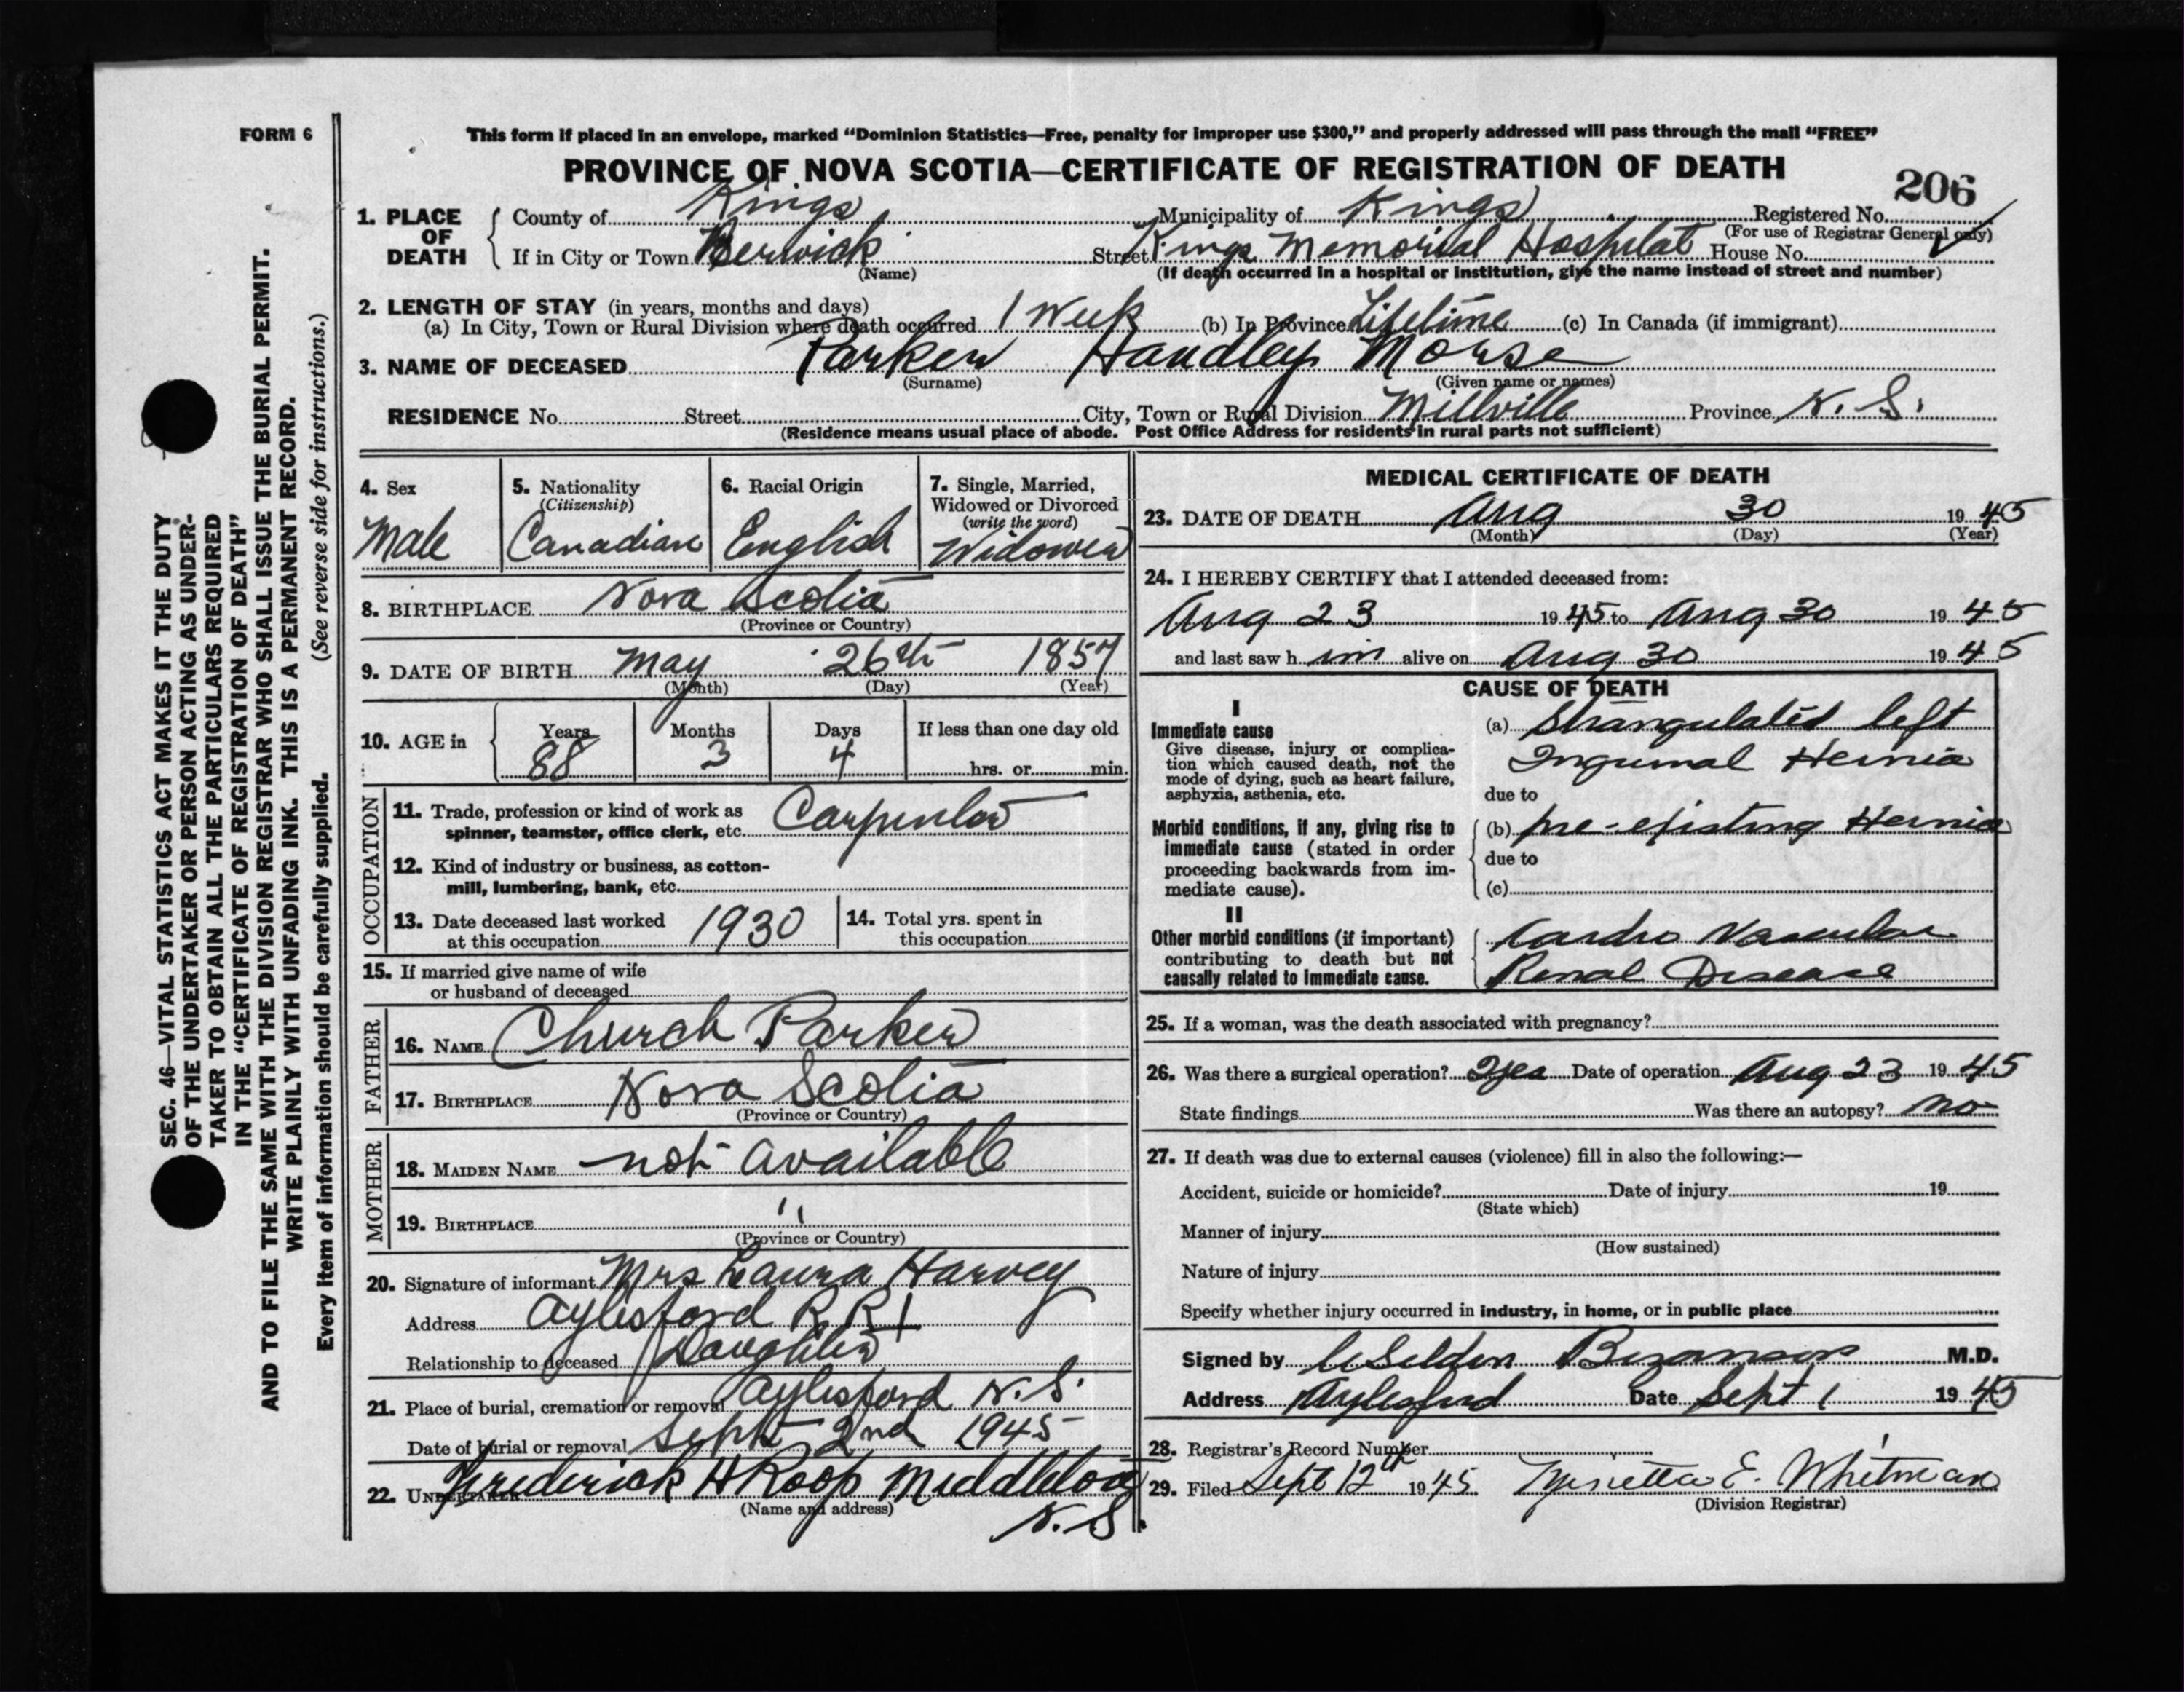 FORM 6
This form if placed in an envelope, marked “Dominion Statistics—Free, penalty for improper use $300,” and properly addressed will pass through the mail “FREE”
PROVINCE OF NOVA SCOTIA—CERTIFICATE OF REGISTRATION OF DEATH
206
1. PLACE OF DEATH
County of Kings Municipality of Kings Registered No.
(For use of Registrar General only)
If in City or Town Berwick Street Kings Memorial Hospital House No.
(Name) (If death occurred in a hospital or institution, give the name instead of street and number)
2. LENGTH OF STAY (in years, months and days)
(a) In City, Town or Rural Division where death occurred 1 Week (b) In Province Lifetime (c) In Canada (if immigrant)
3. NAME OF DECEASED Parker Handley Morse
(Surname) (Given name or names)
RESIDENCE No. Street City, Town or Rural Division Millville Province N. S.
(Residence means usual place of abode. Post Office Address for residents in rural parts not sufficient)
4. Sex
Male
5. Nationality
(Citizenship)
Canadian
6. Racial Origin
English
7. Single, Married,
Widowed or Divorced
(write the word)
Widower
8. BIRTHPLACE Nova Scotia
(Province or Country)
9. DATE OF BIRTH May 26th 1857
(Month) (Day) (Year)
10. AGE in
Years Months Days If less than one day old
88 3 4 hrs. or min.
OCCUPATION
11. Trade, profession or kind of work as
spinner, teamster, office clerk, etc. Carpenter
12. Kind of industry or business, as cotton-
mill, lumbering, bank, etc.
13. Date deceased last worked
at this occupation 1930
14. Total yrs. spent in
this occupation
15. If married give name of wife
or husband of deceased
FATHER
16. NAME Church Parker
17. BIRTHPLACE Nova Scotia
(Province or Country)
MOTHER
18. MAIDEN NAME not available
19. BIRTHPLACE "
(Province or Country)
20. Signature of informant Mrs Laura Harvey
Address Aylesford R R 1
Relationship to deceased Daughter
21. Place of burial, cremation or removal Aylesford N. S.
Date of burial or removal Sept 2nd 1945
22. UNDERTAKER Frederick H Roop Middleton
(Name and address) N. S.
MEDICAL CERTIFICATE OF DEATH
23. DATE OF DEATH Aug 30 1945
(Month) (Day) (Year)
24. I HEREBY CERTIFY that I attended deceased from:
Aug 23 1945 to Aug 30 1945
and last saw him alive on Aug 30 1945
CAUSE OF DEATH
I
Immediate cause
Give disease, injury or complica-
tion which caused death, not the
mode of dying, such as heart failure,
asphyxia, asthenia, etc.
(a) Strangulated left
Inguinal Hernia
due to
Morbid conditions, if any, giving rise to
immediate cause (stated in order
proceeding backwards from im-
mediate cause).
(b) pre-existing Hernia
due to
(c)
II
Other morbid conditions (if important)
contributing to death but not
causally related to immediate cause.
Cardio Vascular
Renal Disease
25. If a woman, was the death associated with pregnancy?
26. Was there a surgical operation? Yes Date of operation Aug 23 1945
State findings Was there an autopsy? no
27. If death was due to external causes (violence) fill in also the following:—
Accident, suicide or homicide? Date of injury 19
(State which)
Manner of injury
(How sustained)
Nature of injury
Specify whether injury occurred in industry, in home, or in public place
Signed by Selden Bezanson M.D.
Address Aylesford Date Sept 1 1945
28. Registrar's Record Number
29. Filed Sept 12th 1945 E. Whitman
(Division Registrar)
SEC. 46—VITAL STATISTICS ACT MAKES IT THE DUTY
OF THE UNDERTAKER OR PERSON ACTING AS UNDER-
TAKER TO OBTAIN ALL THE PARTICULARS REQUIRED
IN THE “CERTIFICATE OF REGISTRATION OF DEATH”
AND TO FILE THE SAME WITH THE DIVISION REGISTRAR WHO SHALL ISSUE THE BURIAL PERMIT.
WRITE PLAINLY WITH UNFADING INK. THIS IS A PERMANENT RECORD.
Every item of information should be carefully supplied. (See reverse side for instructions.)